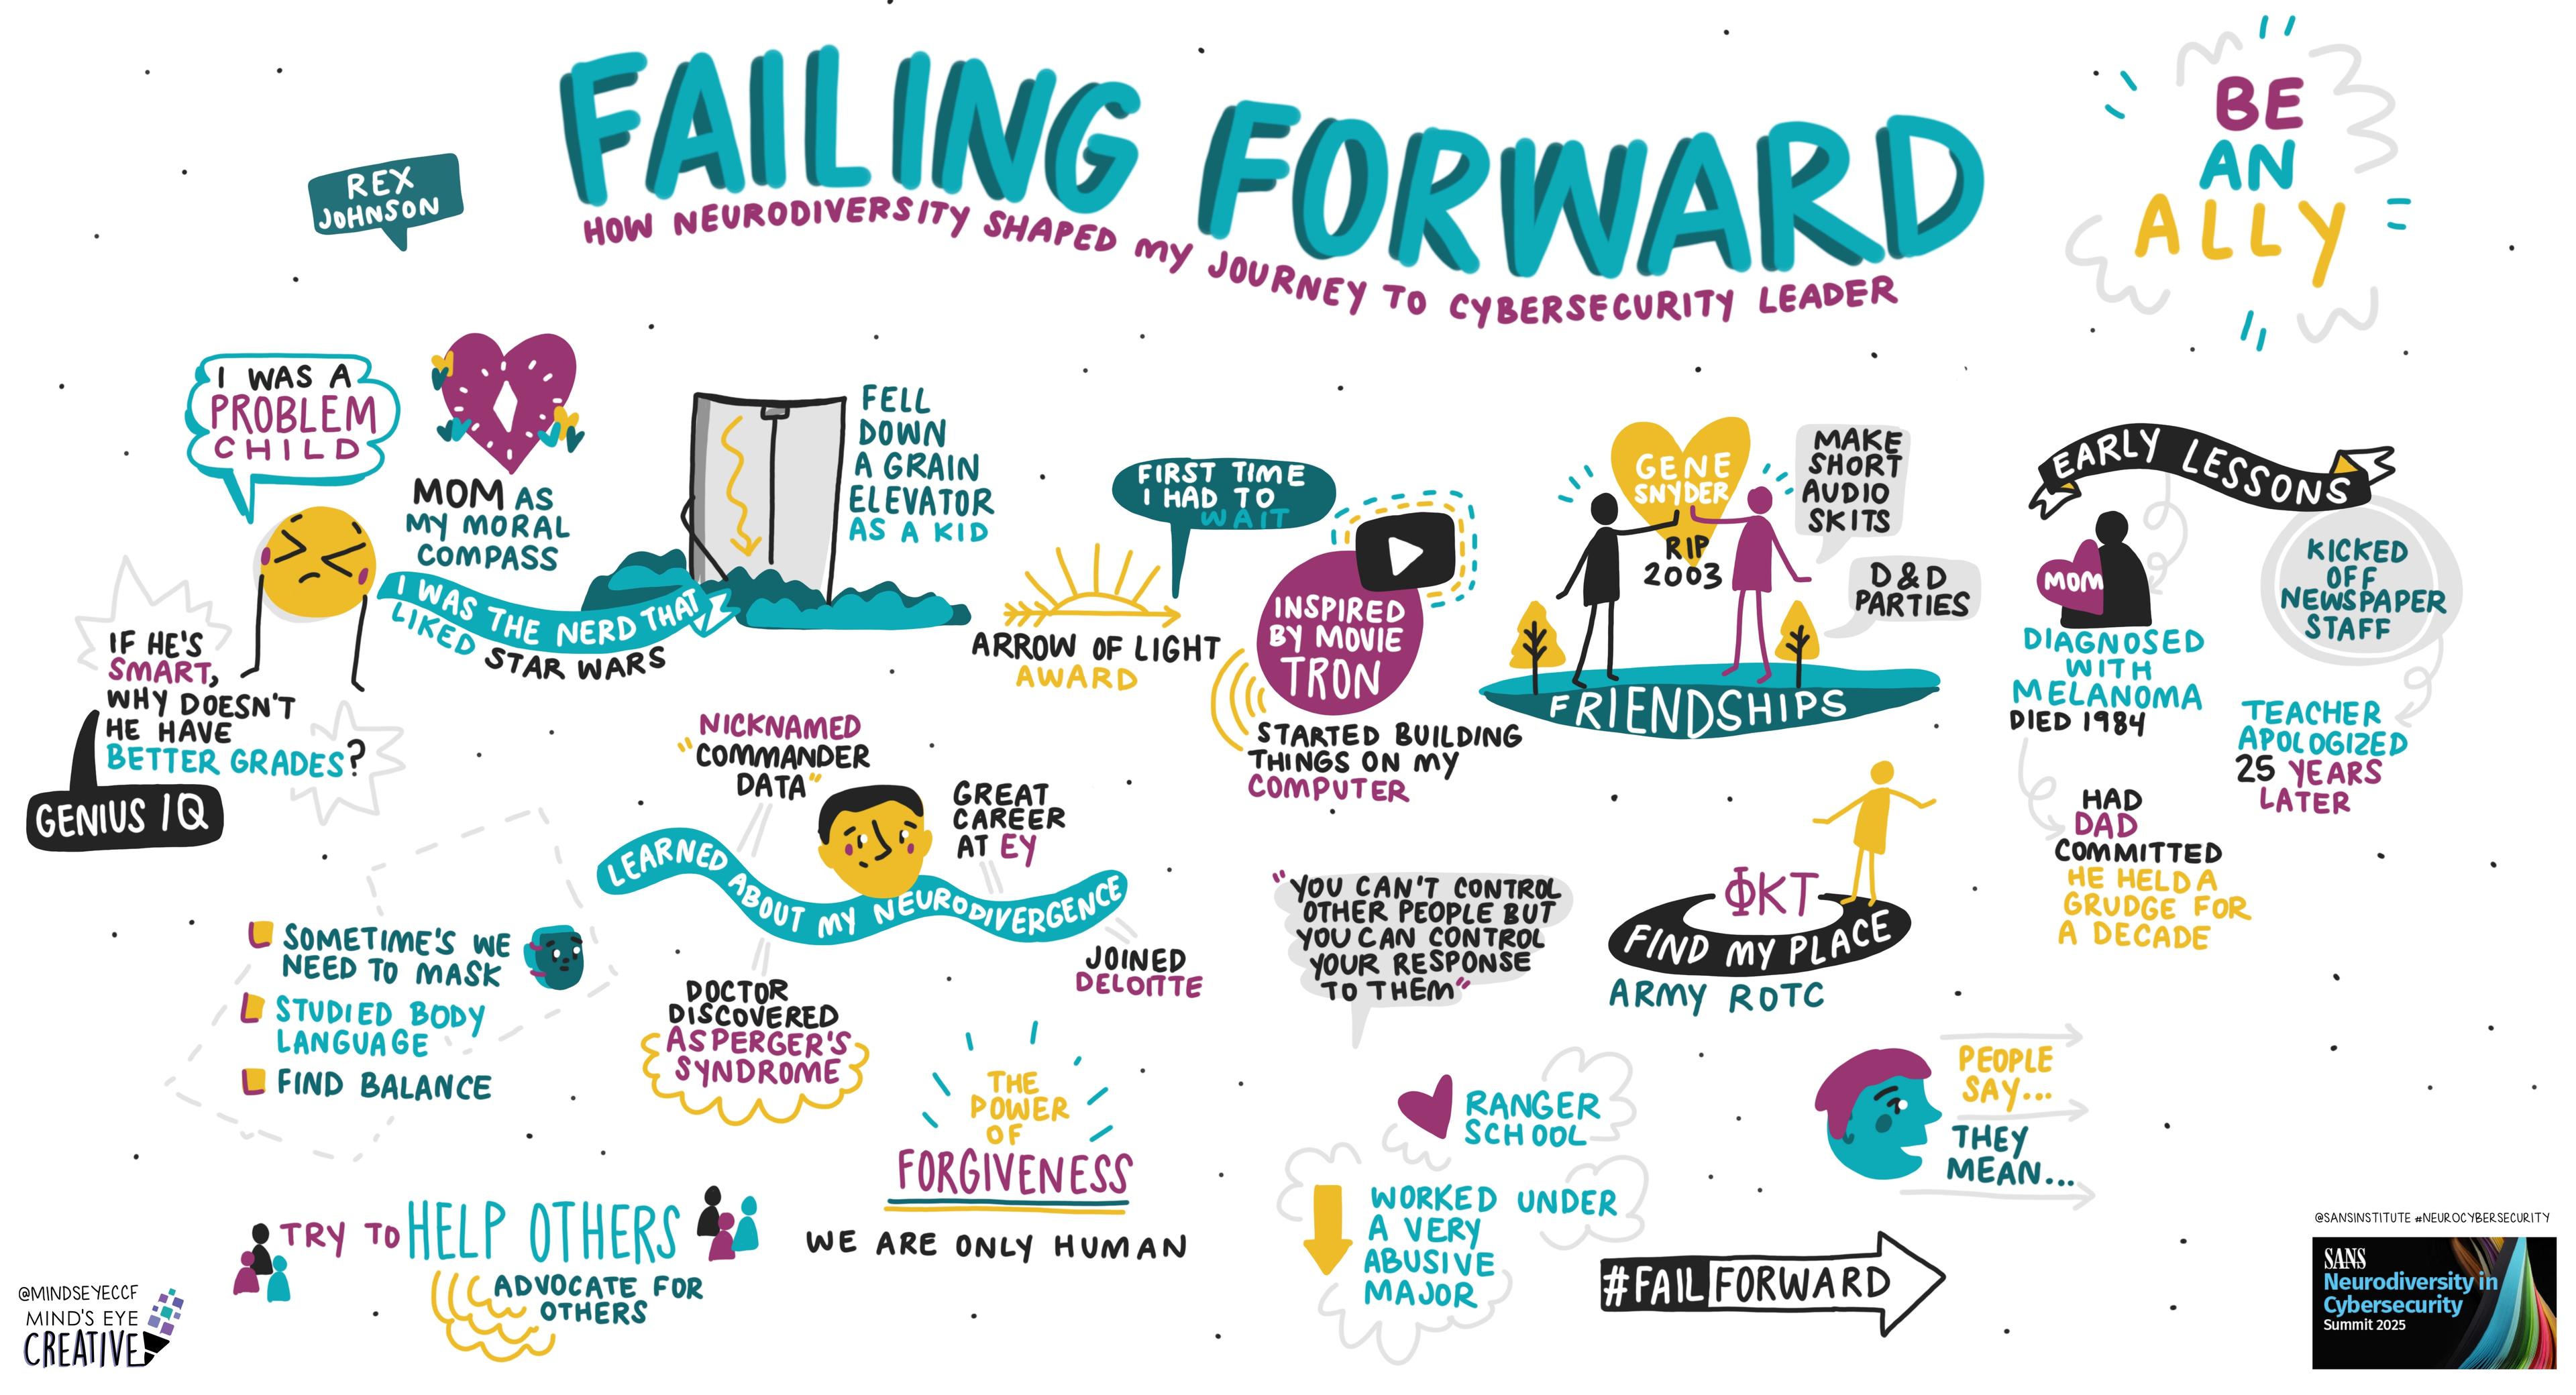 FAILING FORWARD
HOW NEURODIVERSITY SHAPED MY JOURNEY TO CYBERSECURITY LEADER
REX
JOHNSON
BE
AN
ALLY
I WAS A
PROBLEM
CHILD
MOM AS
MY MORAL
COMPASS
FELL
DOWN
A GRAIN
ELEVATOR
AS A KID
I WAS THE NERD THAT
LIKED STAR WARS
IF HE'S
SMART,
WHY DOESN'T
HE HAVE
BETTER GRADES?
GENIUS IQ
FIRST TIME
I HAD TO
WAIT
ARROW OF LIGHT
AWARD
INSPIRED
BY MOVIE
TRON
STARTED BUILDING
THINGS ON MY
COMPUTER
GENE
SNYDER
RIP
2003
MAKE
SHORT
AUDIO
SKITS
D&D
PARTIES
FRIENDSHIPS
EARLY LESSONS
MOM
DIAGNOSED
WITH
MELANOMA
DIED 1984
KICKED
OFF
NEWSPAPER
STAFF
TEACHER
APOLOGIZED
25 YEARS
LATER
HAD
DAD
COMMITTED
HE HELD A
GRUDGE FOR
A DECADE
NICKNAMED
"COMMANDER
DATA"
GREAT
CAREER
AT EY
LEARNED ABOUT MY NEURODIVERGENCE
JOINED
DELOITTE
DOCTOR
DISCOVERED
ASPERGER'S
SYNDROME
SOMETIME'S WE
NEED TO MASK
STUDIED BODY
LANGUAGE
FIND BALANCE
"YOU CAN'T CONTROL
OTHER PEOPLE BUT
YOU CAN CONTROL
YOUR RESPONSE
TO THEM"
ΦKT
FIND MY PLACE
ARMY ROTC
THE
POWER
OF
FORGIVENESS
WE ARE ONLY HUMAN
RANGER
SCHOOL
WORKED UNDER
A VERY
ABUSIVE
MAJOR
PEOPLE
SAY...
THEY
MEAN...
TRY TO HELP OTHERS
ADVOCATE FOR
OTHERS
#FAILFORWARD
@MINDSEYECCF
MIND'S EYE
CREATIVE
@SANSINSTITUTE #NEUROCYBERSECURITY
SANS
Neurodiversity in
Cybersecurity
Summit 2025